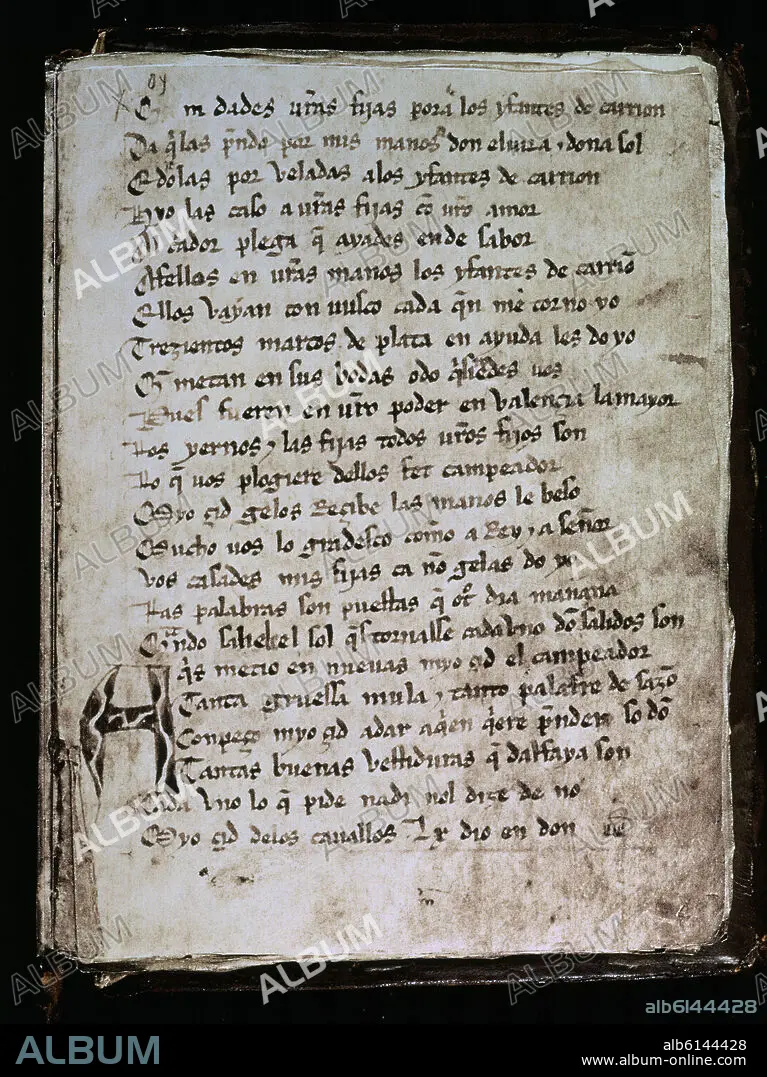 oy
E m dades vr̃as fijas pora los yfantes de carrion
Da q̃las p̃ndo por mis manos don elvira ⁊ dona sol
E dolas por veladas alos yfantes de carrion
Hyo las caso a vr̃as fijas cõ vr̃o amor
Al c̃ador plega q̃ ayades ende sabor
Afellos en vr̃as manos los yfantes de carriõ
Ellos vayan con uusco cada q̃n me torno yo
Trezientos marcos de plata en ayuda les do yo
Q̃ metan en sus bodas o do q̃sieredes uos
Pues fueren en vr̃o poder en valençia la mayor
Los yernos ⁊ las fijas todos vr̃os fijos son
Lo q̃ uos plogiere dellos fet campeador
Myo çid gelos Reçibe las manos le beso
Mucho uos lo gradesco como a Rey ⁊ a señor
vos casades mis fijas ca nõ gelas do yo
Las palabras son puestas q̃ ot̃ dia mañana
Quando salie el sol q̃s tornasse cada uno dõ salidos son
Aq̃s metio en nueuas myo çid el campeador
Tanta gruessa mula ⁊ tanto palafre de sazõ
Conpeço myo çid a dar aq̃en q̃ere p̃nder so dõ
Tantas buenas vestiduras q̃ dalfaya son
Cada uno lo q̃ pide nadi nol dize de no
Myo çid delos cauallos Lx dio en don
ALBUM
alb6144428
ALBUM
alb6144428
www.album-online.com